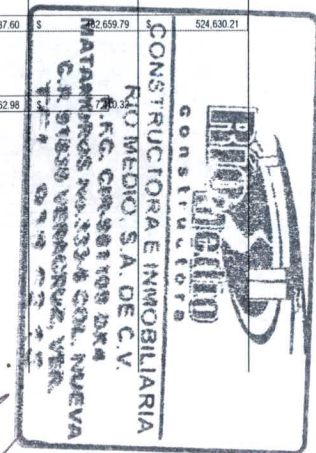 37.60 $ 482,659.79 $ 524,630.21
52.98 $
RIO medio
constructora
CONSTRUCTORA E INMOBILIARIA
RIO MEDIO, S.A. DE C.V.
MATAMOROS No. COL. NUEVA
C.P. 91839 VERACRUZ, VER.